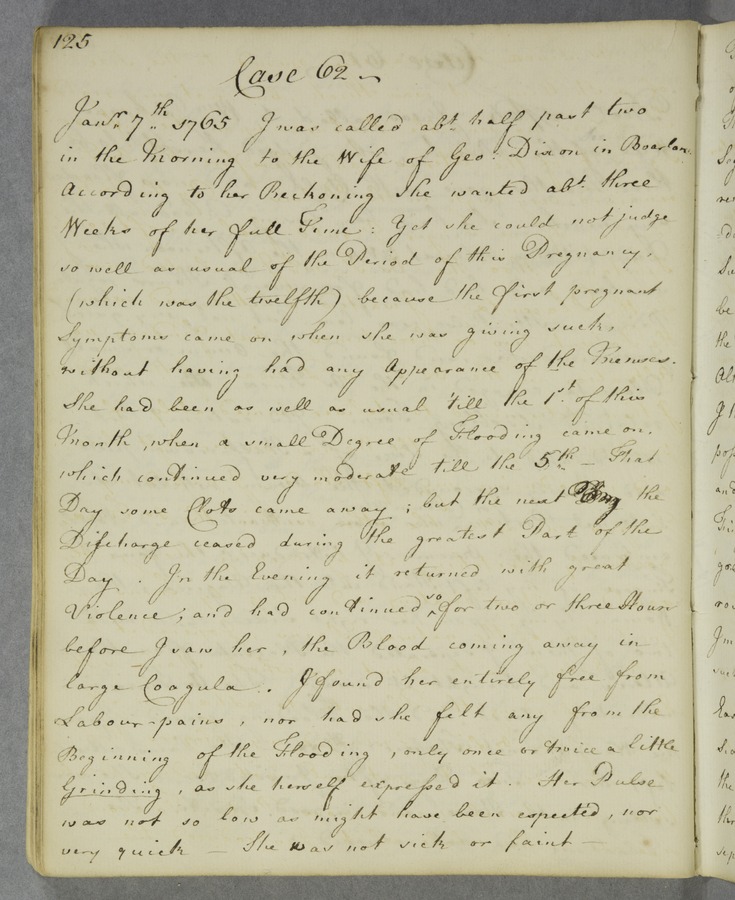 125
Case 62
Jany. 7th. 1765 I was called abt. half past two
in the Morning to the Wife of Geo: Dixon in Boarlan:
According to her Reckoning She wanted abt. three
Weeks of her full Time: Yet she could not judge
so well as usual of the Period of this Pregnancy,
(which was the twelfth) because the first pregnant
Symptoms came on when she was giving suck,
without having had any Appearance of the Menses.
She had been as well as usual 'till the 1st. of this
Month, when a small Degree of Flooding came on.
which continued very moderate till the 5th. – That
Day some Clots came away; but the next the
Discharge ceased during the greatest Part of the
Day. In the Evening it returned with great
Violence; and had continued so for two or three Hours
before I saw her, the Blood coming away in
large Coagula. I found her entirely free from
Labour-pains, nor had she felt any from the
Beginning of the Flooding, only once or twice a little
Grinding, as she herself expressed it. Her Pulse
was not so low as might have been expected, nor
very quick – She was not sick or faint –